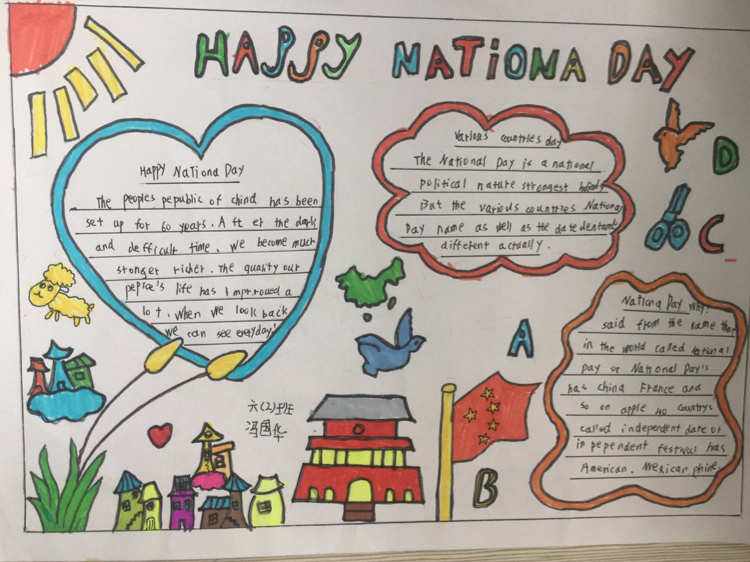 HAPPY NATIONA DAY
Happy Nationa Day
The peoples pepublic of china has been
set up for 60 years. Aft er the dark
and defficult time, we become much
stronger richer. The quality our
pepple's life has improued a
lot. when we look back
we can see everyday!
Various countries day
The National Day is a national
political nature strongest
But the various countries National
Day name as well as the date
different actually.
Nationa Day why?
said from the name then
in the world called national
pay or National Day's
has china France and
so on apple 40 countrys
called independent date or
in pependent festival has
American. Mexican phine
D
C
A
B
六(2)班
冯国华